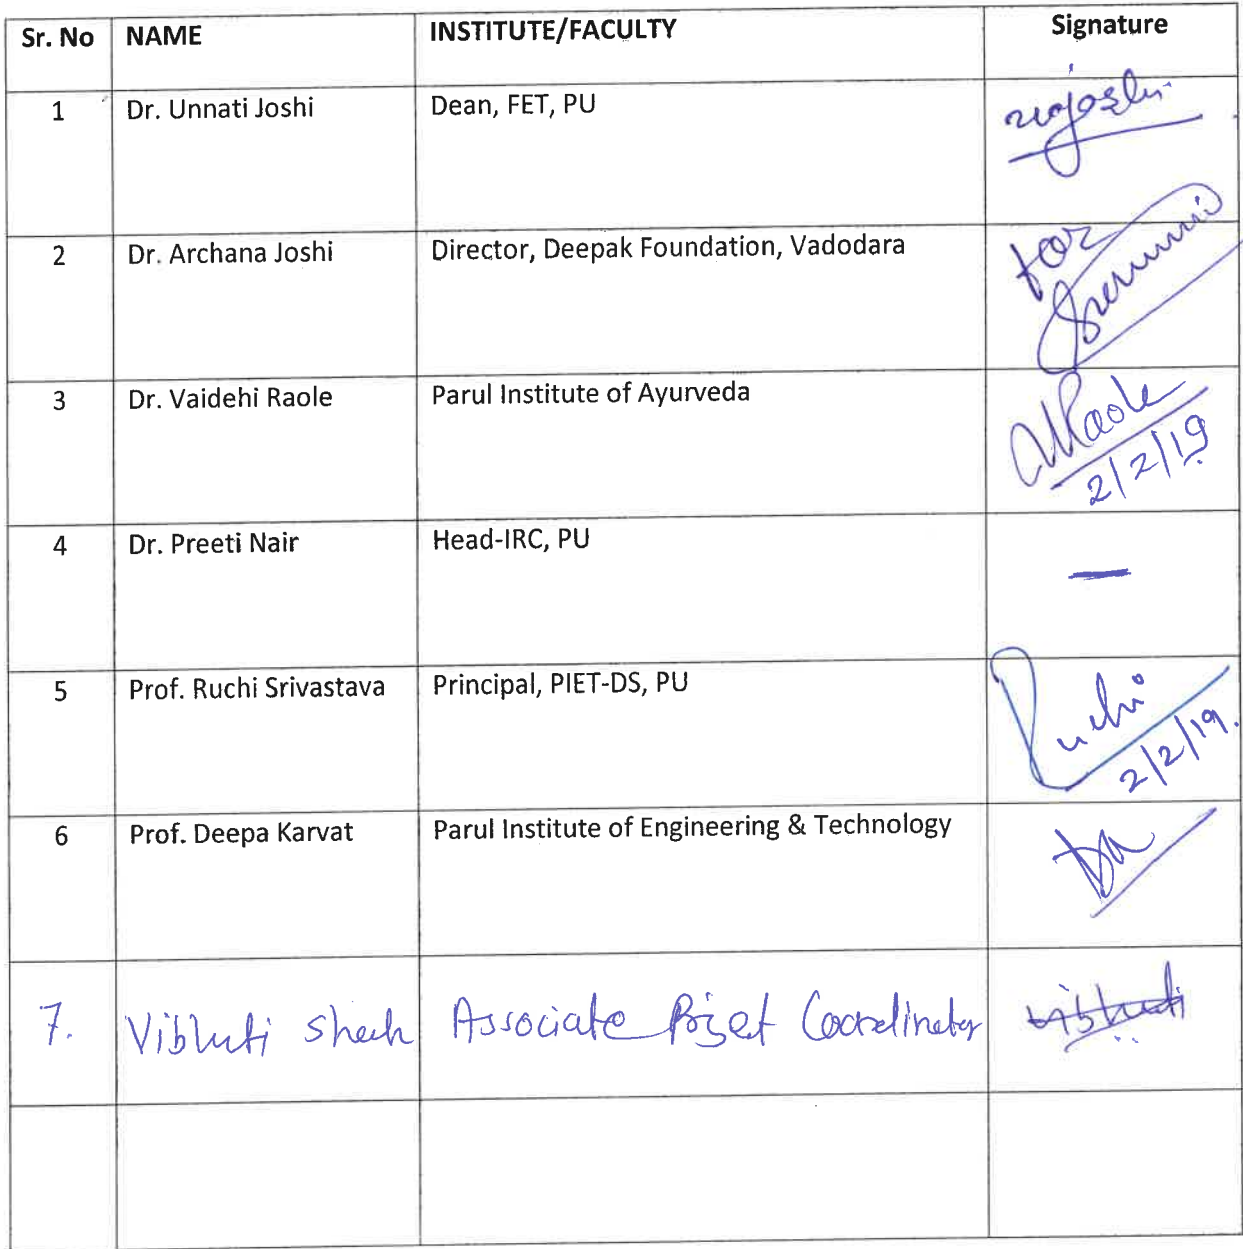 Sr. No NAME INSTITUTE/FACULTY Signature
1 Dr. Unnati Joshi Dean, FET, PU ujoshi
2 Dr. Archana Joshi Director, Deepak Foundation, Vadodara for
3 Dr. Vaidehi Raole Parul Institute of Ayurveda VRaole
2/2/19
4 Dr. Preeti Nair Head-IRC, PU —
5 Prof. Ruchi Srivastava Principal, PIET-DS, PU Ruchi
2/2/19.
6 Prof. Deepa Karvat Parul Institute of Engineering & Technology
7. Vibhuti Shah Associate Coordinator Vibhuti